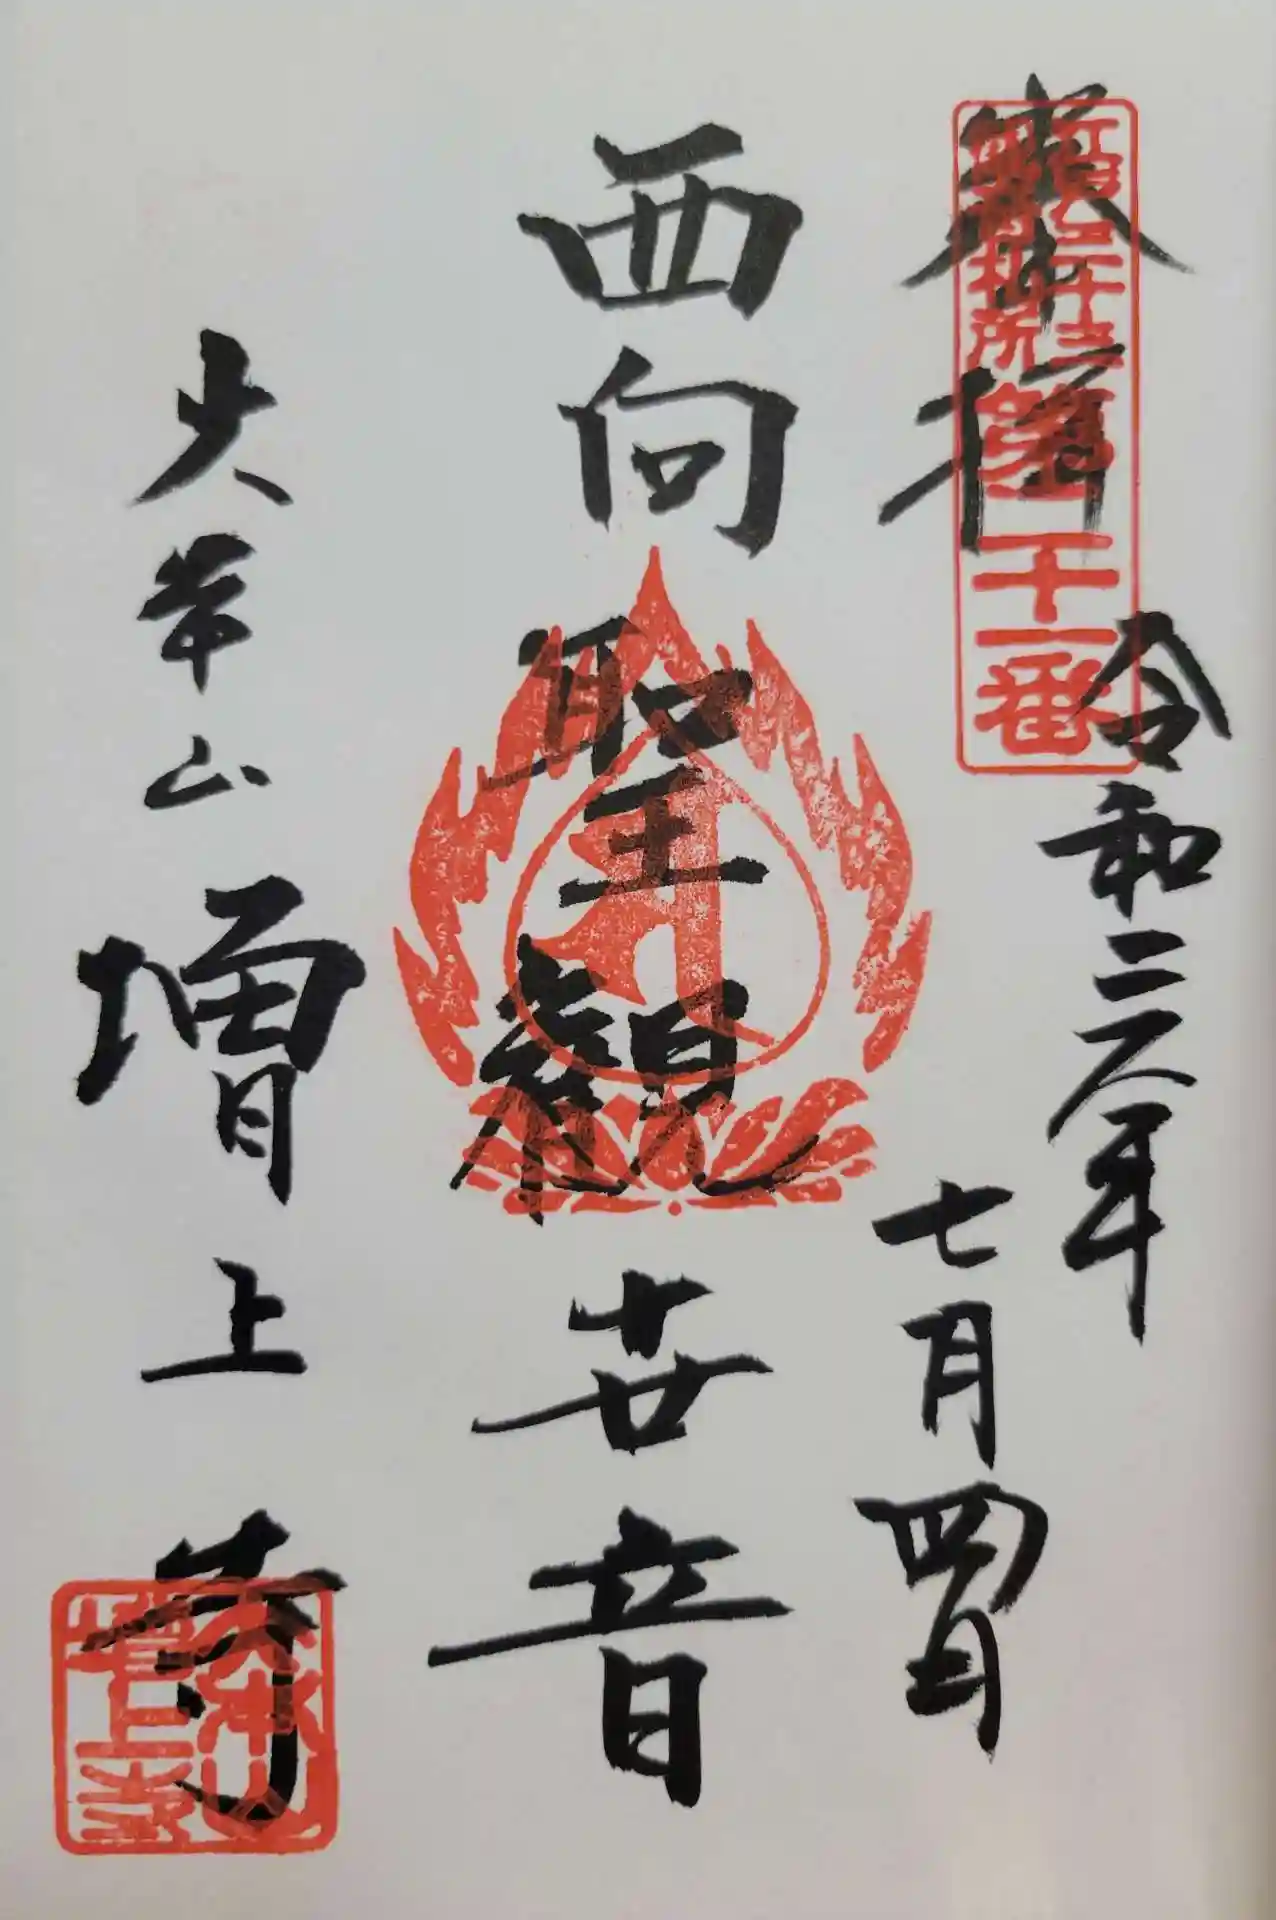 奉拝
江戸三十三
観音札所
第二十一番
令和
七月四日
西向聖観世音
大本山増上寺
大本山
増上寺